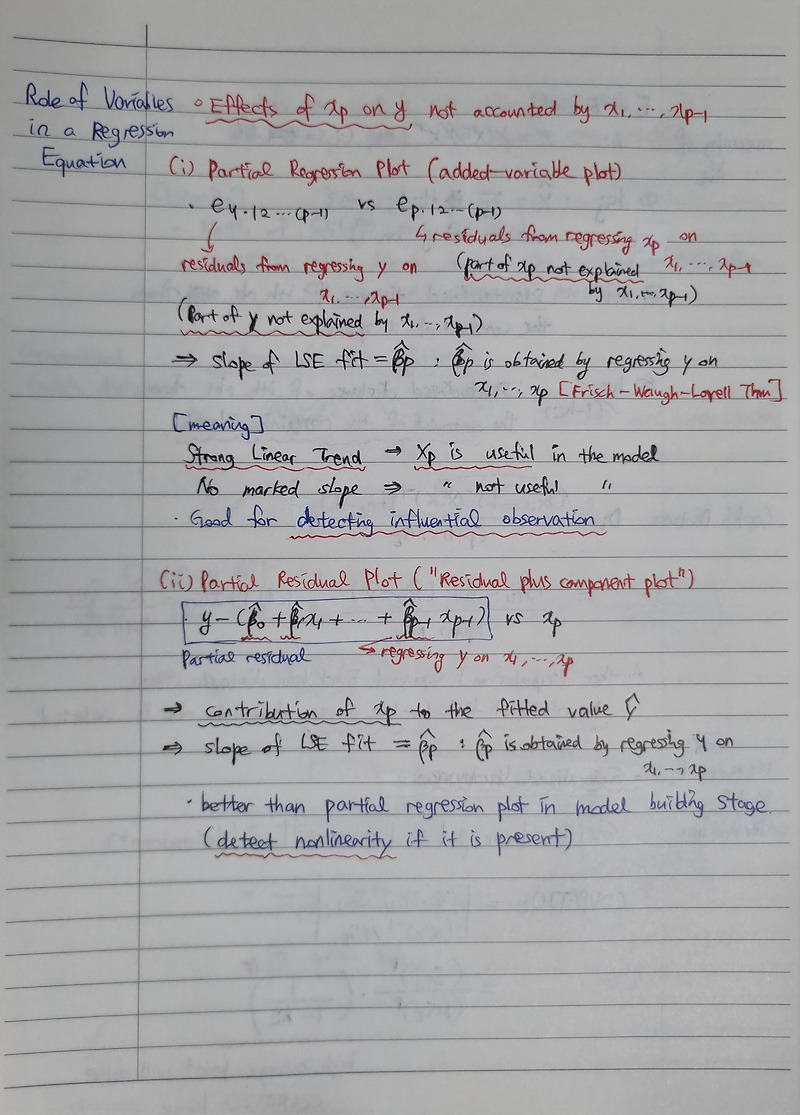 Role of Variables
in a Regression
Equation
◦ Effects of xp on y not accounted by x1, ⋯, xp-1
(i) Partial Regression Plot (added-variable plot)
· ey·12⋯(p-1) vs ep·12⋯(p-1)
↳ residuals from regressing xp on x1, ⋯, xp-1
(part of xp not explained by x1, ⋯, xp-1)
residuals from regressing y on x1, ⋯, xp-1
(part of y not explained by x1, ⋯, xp-1)
⇒ slope of LSE fit = β̂p : β̂p is obtained by regressing y on
x1, ⋯, xp [Frisch-Waugh-Lovell Thm]
[meaning]
Strong Linear Trend → Xp is useful in the model
No marked slope ⇒ " not useful "
· Good for detecting influential observation
(ii) Partial Residual Plot ("Residual plus component plot")
· y - (β̂0 + β̂1x1 + ⋯ + β̂p-1 xp-1) vs xp
Partial residual ↪ regressing y on x1, ⋯, xp
⇒ contribution of xp to the fitted value ŷ
⇒ slope of LSE fit = β̂p : β̂p is obtained by regressing y on
x1, ⋯, xp
· better than partial regression plot in model building stage.
(detect nonlinearity if it is present)